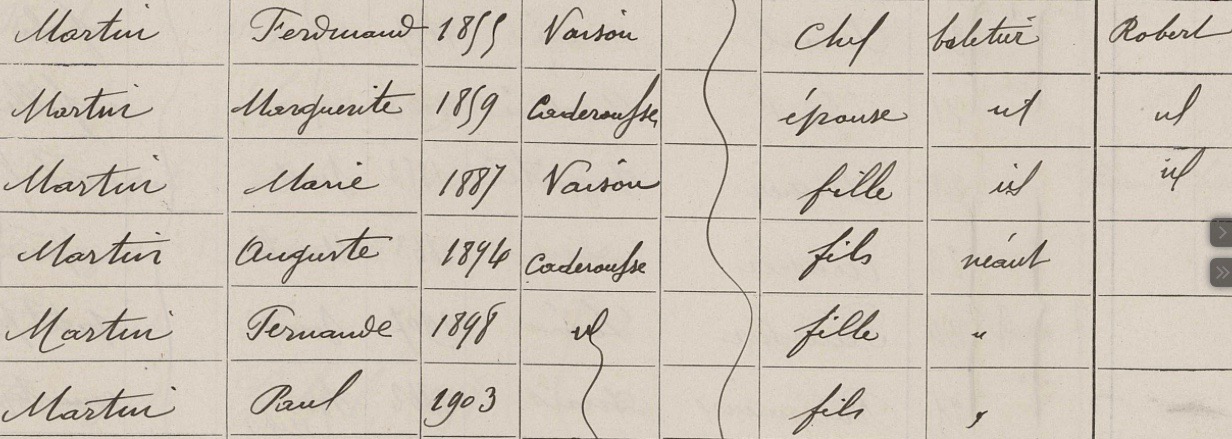 Martin Ferdinand 1855 Vaison Chef baletier Robert
Martin Marguerite 1859 Caderousse épouse id id
Martin Marie 1887 Vaison fille id id
Martin Auguste 1894 Caderousse fils néant
Martin Fernande 1898 id fille "
Martin Paul 1903 fils "